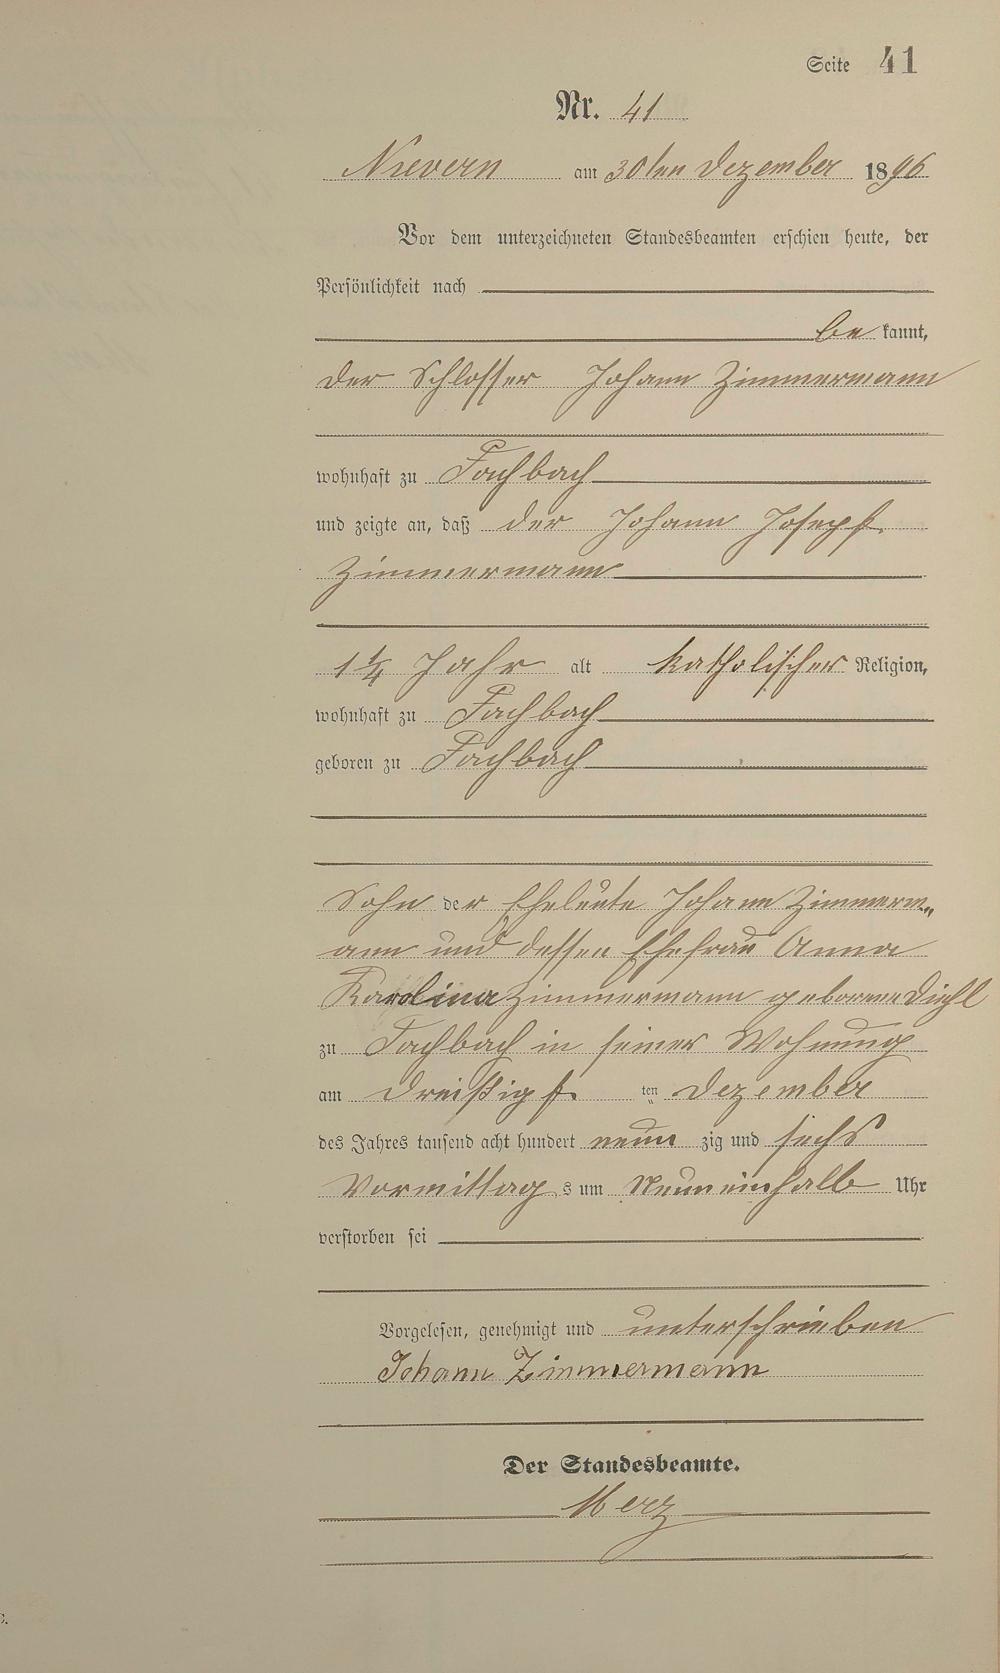 Seite 41
Nr. 41
Nievern am 30ten Dezember 1896
Vor dem unterzeichneten Standesbeamten erschien heute, der
Persönlichkeit nach
bekannt,
der Schlosser Johann Zimmermann
wohnhaft zu Fachbach
und zeigte an, daß der Johann Joseph
Zimmermann
1 1/4 Jahr alt katholischer Religion,
wohnhaft zu Fachbach
geboren zu Fachbach
Sohn der Eheleute Johann Zimmerm„
ann und dessen Ehefrau Anna
Karolina Zimmermann geborene Diehl
zu Fachbach in seiner Wohnung
am dreißigsten Dezember
des Jahres tausend acht hundert neunzig und sechs
Vormittags um Neuneinhalb Uhr
verstorben sei
Vorgelesen, genehmigt und unterschrieben
Johann Zimmermann
Der Standesbeamte.
Merz